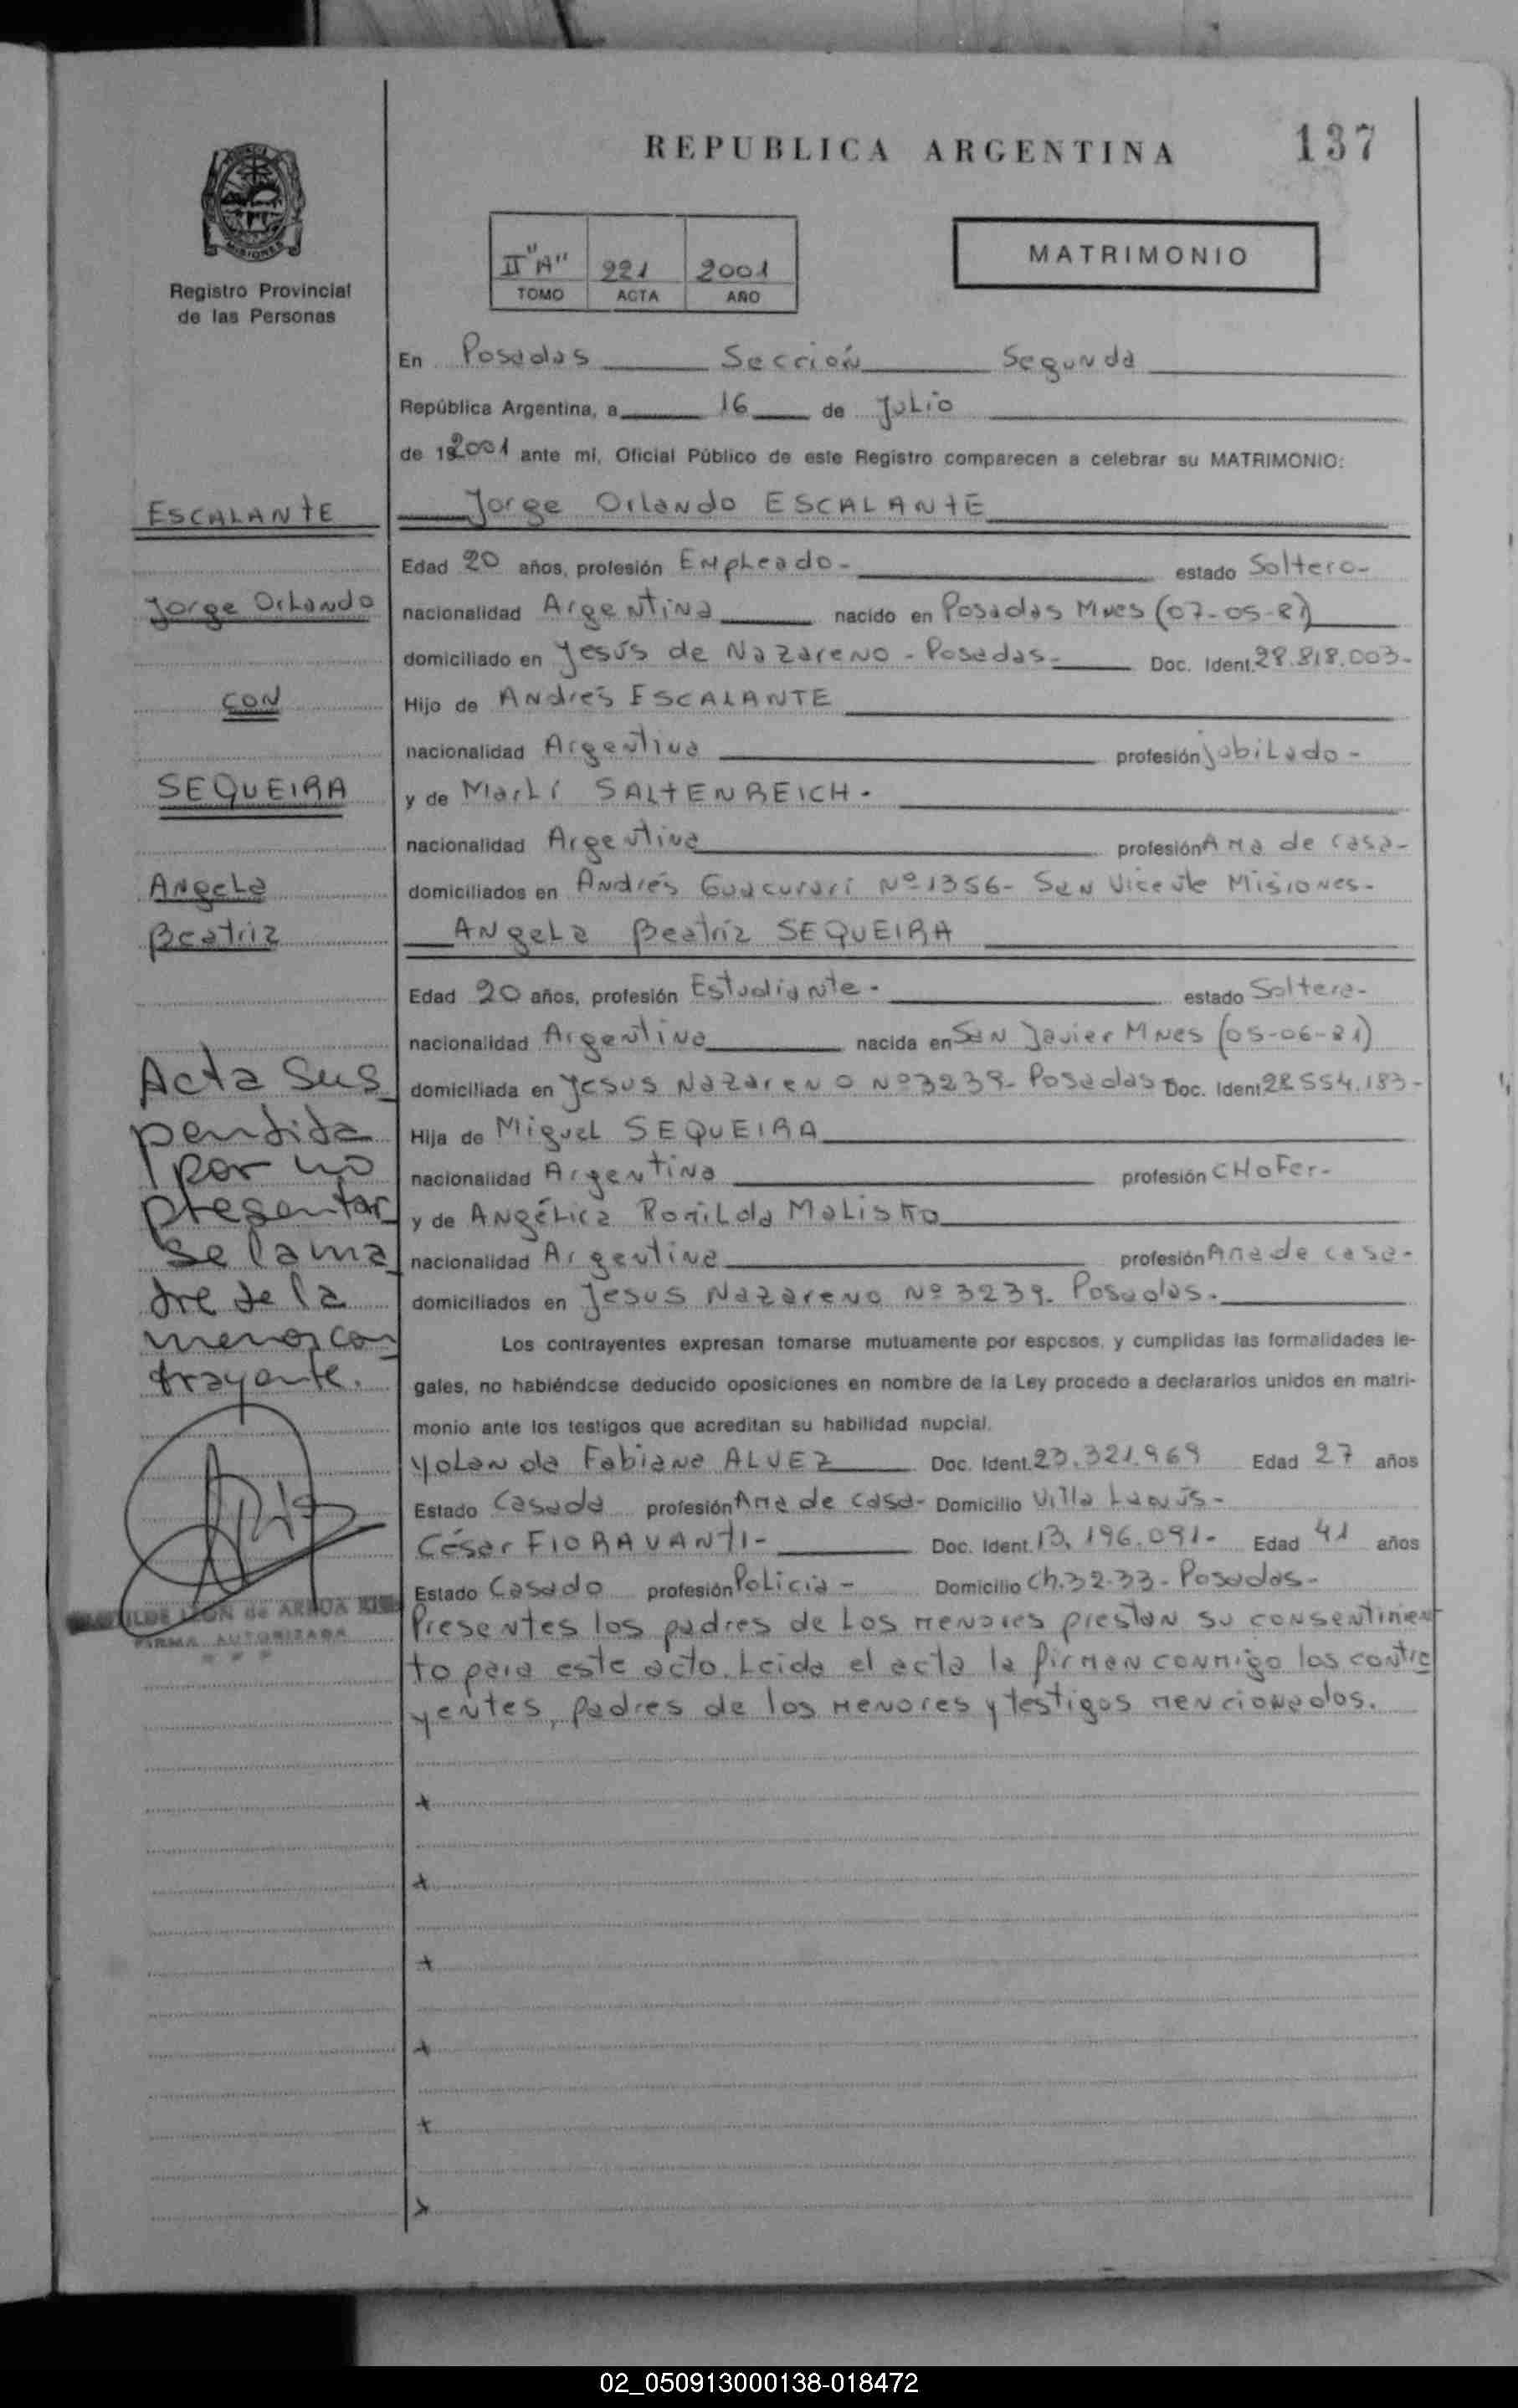 REPUBLICA ARGENTINA
137
MISIONES
Registro Provincial
de las Personas
II "A" 221 2001
TOMO ACTA AÑO
MATRIMONIO
En Posadas Sección Segunda
República Argentina, a 16 de Julio
de 192001 ante mi, Oficial Público de este Registro comparecen a celebrar su MATRIMONIO:
ESCALANTE
Jorge Orlando ESCALANTE
Edad 20 años, profesión Empleado- estado Soltero-
Jorge Orlando
nacionalidad Argentina nacido en Posadas Mnes (07-05-81)
domiciliado en Jesús de Nazareno - Posadas- Doc. Ident. 28.818.003-
CON
Hijo de Andrés ESCALANTE
nacionalidad Argentina profesión Jubilado-
SEQUEIRA
y de Marlí SALTENREICH.
nacionalidad Argentina profesión Ama de casa-
Angela
domiciliados en Andrés Guacurarí Nº 1356- San Vicente Misiones-
Beatriz
Angela Beatriz SEQUEIRA
Edad 20 años, profesión Estudiante- estado Soltera-
nacionalidad Argentina nacida en San Javier Mnes (05-06-81)
domiciliada en Jesus Nazareno Nº 3239- Posadas- Doc. Ident. 28.554.183-
Hija de Miguel SEQUEIRA
nacionalidad Argentina profesión CHOFer-
y de Angélica Romilda Malisko
nacionalidad Argentina profesión Ama de casa-
domiciliados en Jesus Nazareno Nº 3239- Posadas.
Acta Sus
pendida
por no
presentar
se la ma
dre de la
menor con
trayente.
Los contrayentes expresan tomarse mutuamente por esposos, y cumplidas las formalidades le-
gales, no habiéndose deducido oposiciones en nombre de la Ley procedo a declararlos unidos en matri-
monio ante los testigos que acreditan su habilidad nupcial.
Yolanda Fabiana ALVEZ Doc. Ident. 23.321.969 Edad 27 años
Estado Casada profesión Ama de casa- Domicilio Villa Lanús-
César FIORAVANTI- Doc. Ident. 13.196.091- Edad 41 años
Estado Casado profesión Policia- Domicilio Ch.32-33- Posadas-
FIRMA AUTORIZADA
Presentes los padres de los menores prestan su consentimien
to para este acto. Leida el acta la firman conmigo los contra
yentes, padres de los menores y testigos mencionados.
02_050913000138-018472